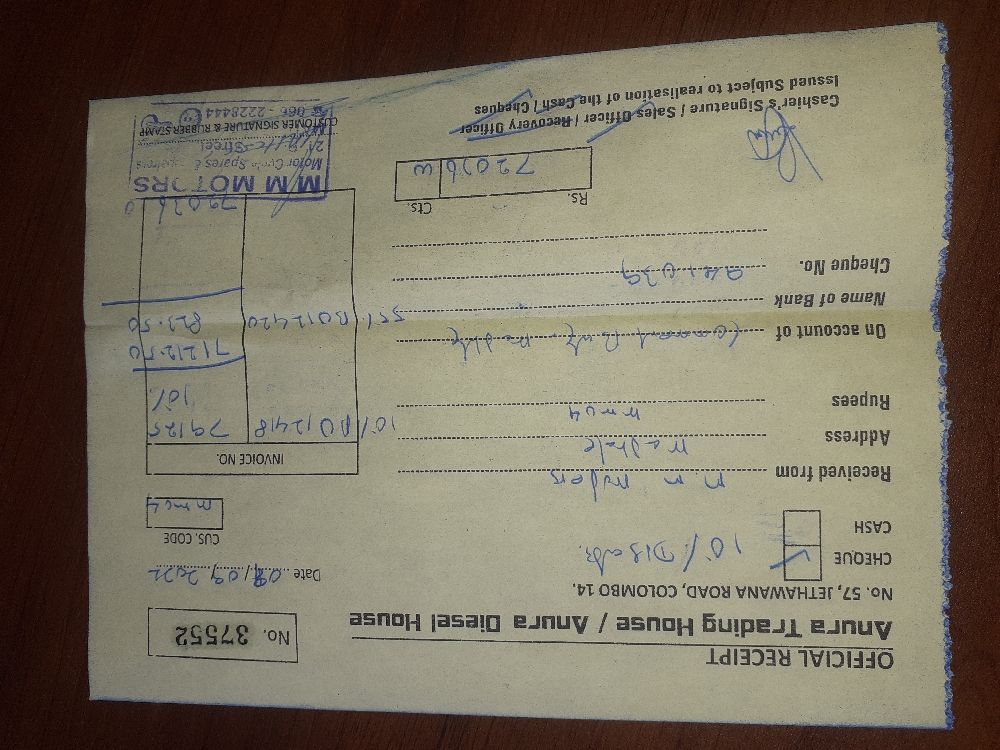 OFFICIAL RECEIPT
Anura Trading House / Anura Diesel House
No. 37552
No. 57, JETHAWANA ROAD, COLOMBO 14.
Date 08/09/2022
CHEQUE 10%
CASH
CUS. CODE
mmu4
Received from M.M
Address
Rupees mmu4
On account of
Name of Bank
Cheque No.
INVOICE NO.
10% 012418 79125
10%
71212.50
5% BO12420 823.50
72036
Rs. Cts.
72036
M M MOTORS
Motor Cycle Spares &
Street
CUSTOMER SIGNATURE & RUBBER STAMP
066 - 2228444
Cashier's Signature / Sales Officer / Recovery Officer
Issued Subject to realisation of the Cash / Cheques